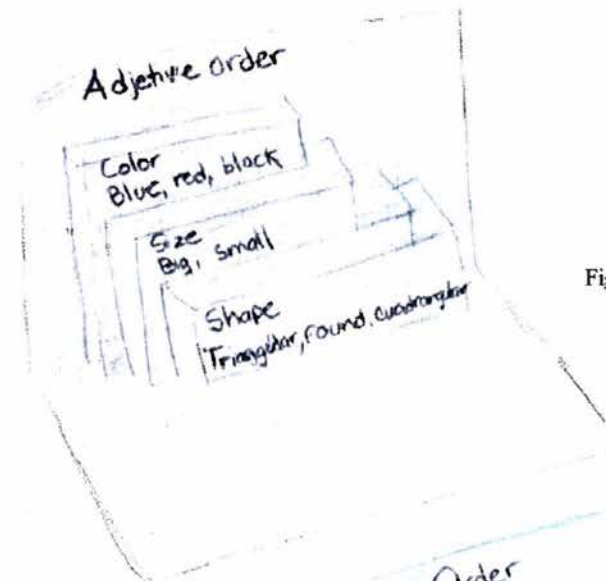 Adjetive order
Color
Blue, red, black
Size
Big, small
Shape
Triangular, round. cuadrangular
Fig
Order